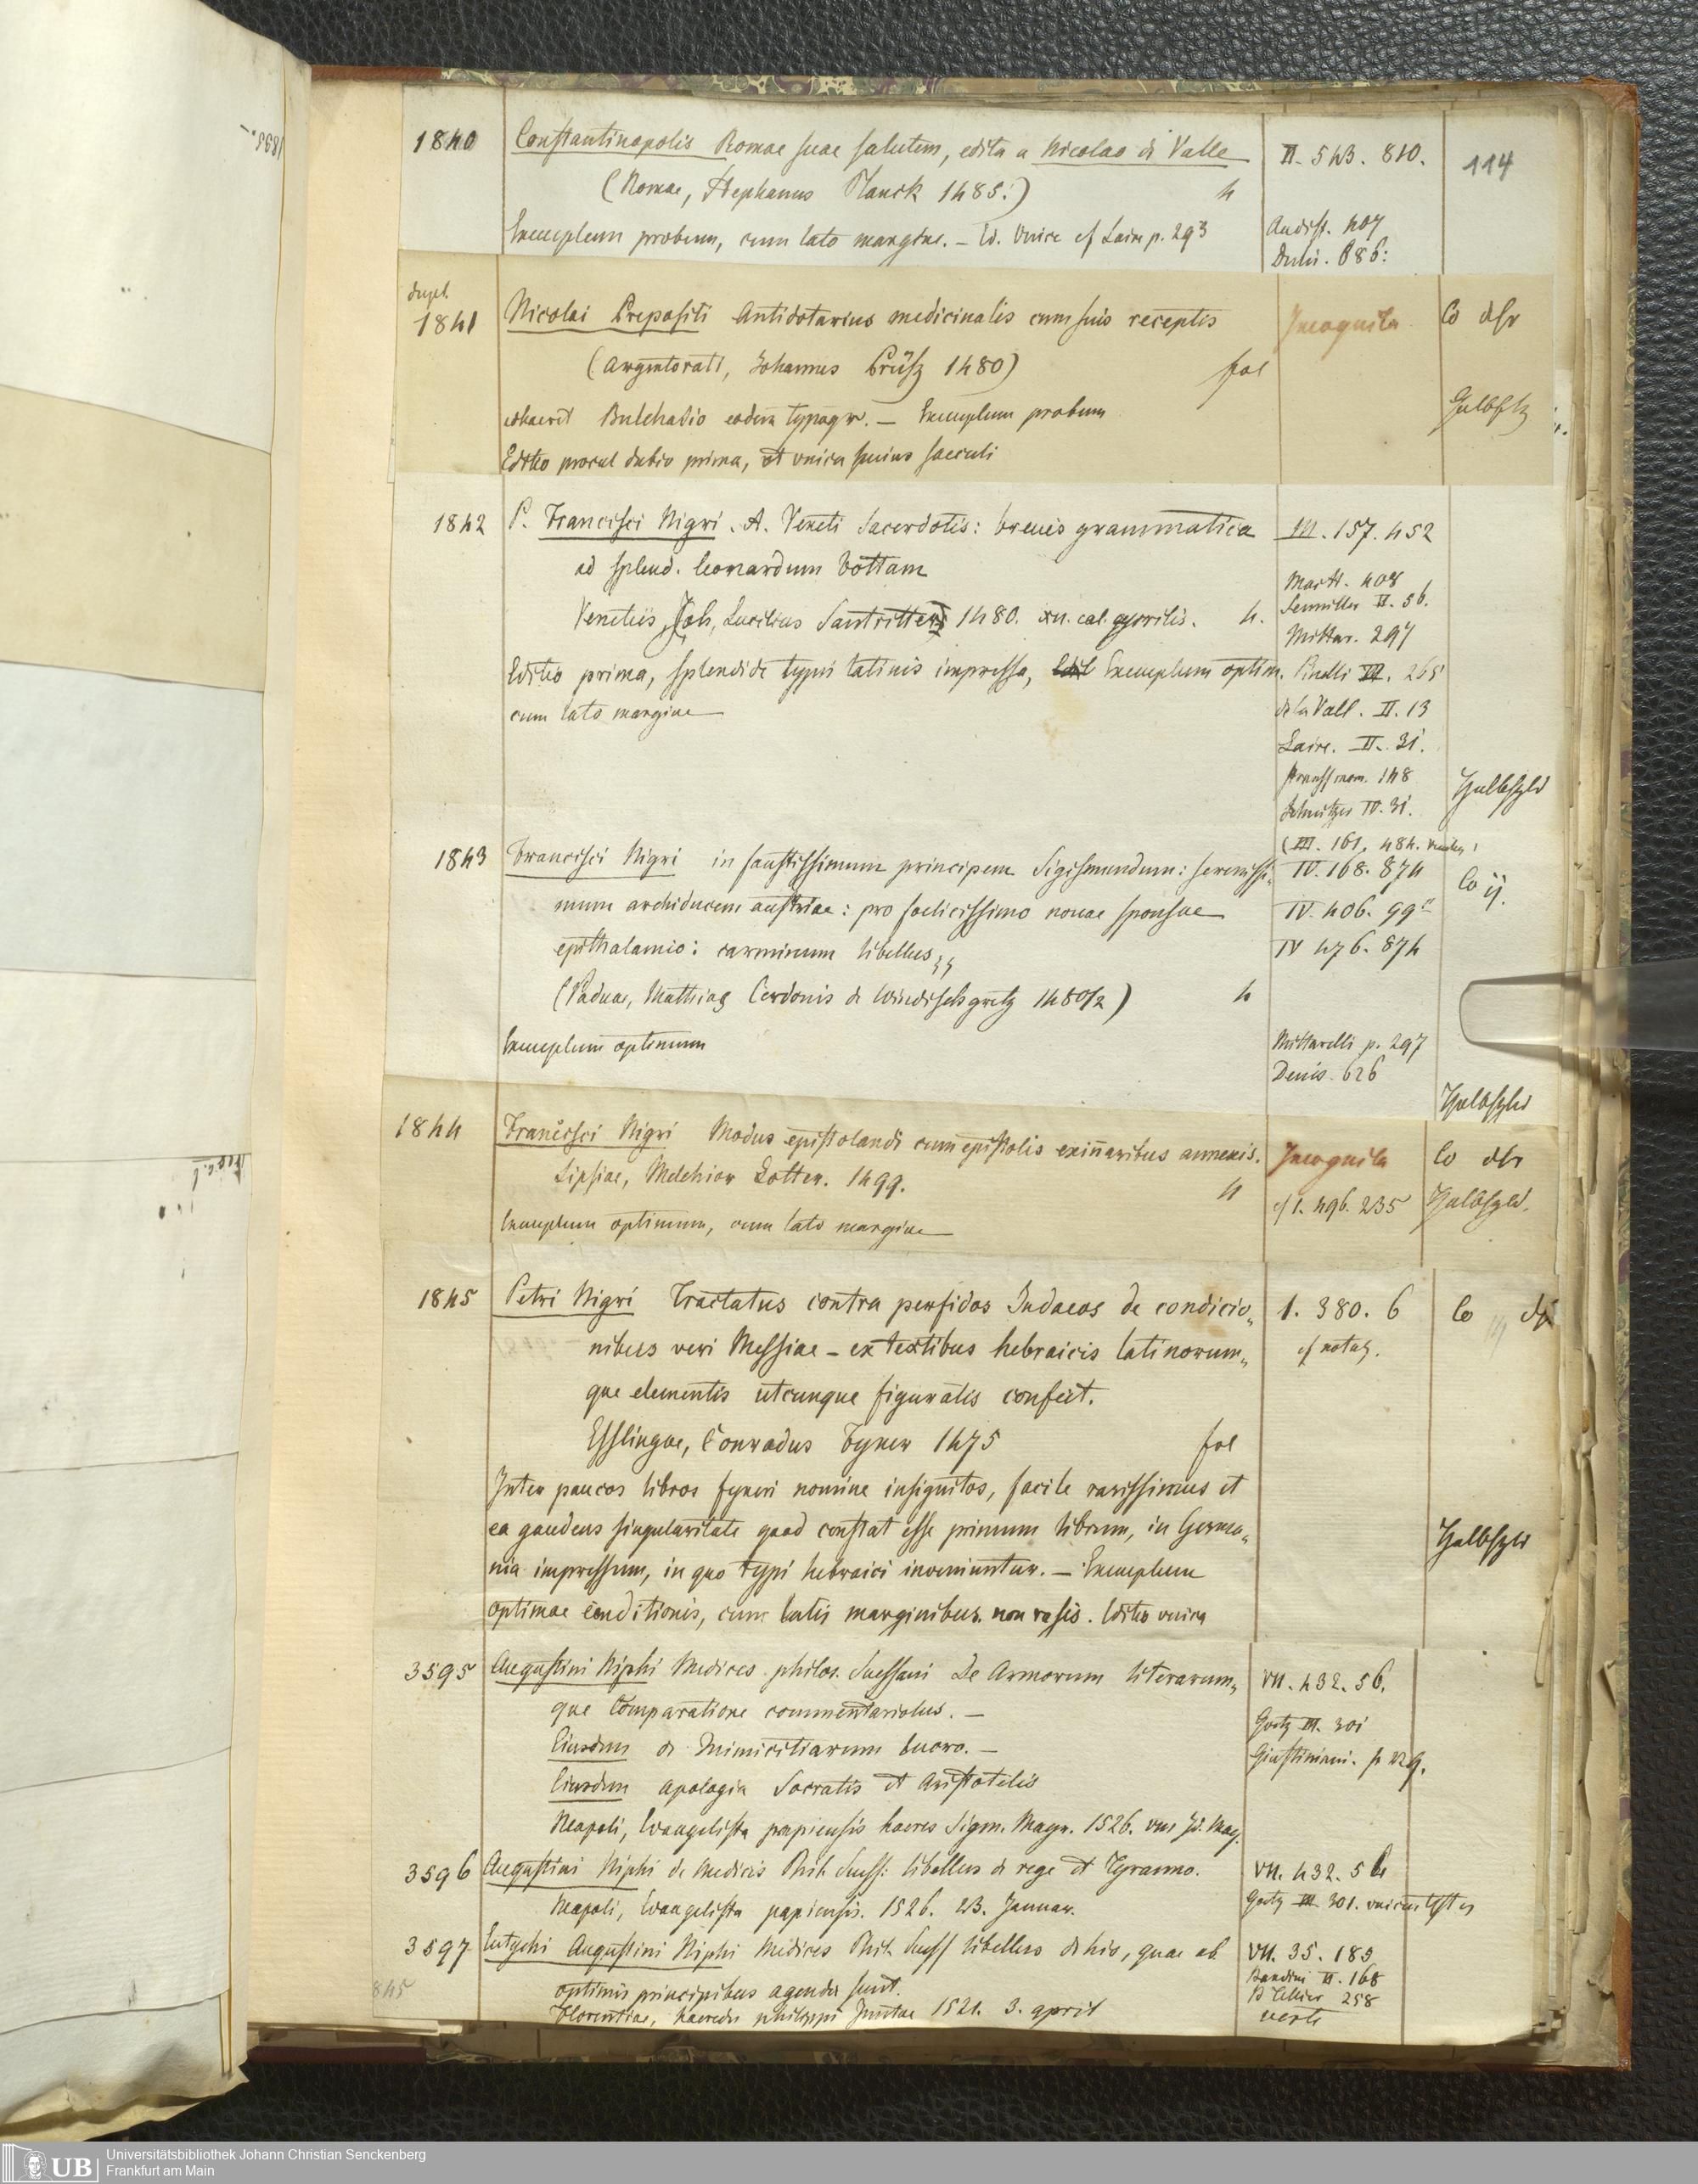 1840 Constantinopolis Romae suae salutem, edita a Nicolao di Valle II. 543. 810. 114
(Romae, Stephanus Planck 1485.) 4
Exemplum probum, cum lato margine. – Ed. Unica cf Laire p. 293 Audiff. 407
Denis. 686:
dupl.
1841 Nicolai Prepositi Antidotarius medicinalis cum suis receptis Incognita Co
(Argentorati, Johannes Prüsz 1480) fol
Bulchasio eodem typogr. – Exemplum probum Halbfrz
Editio procul dubio prima, et unica huius saeculi
1842 P. Francisci Nigri. A. Veneti Sacerdotis: brevis grammatica III. 157. 452
ad splend. Leonardum Bottam Maitt. 408
Venetiis, Joh, Lucilius Santritter 1480. xii. cal. aprilis. 4. Semiller II. 56.
Mittar. 297
Editio prima, splendide typis latinis impressa, Exemplum optim. Pinelli III. 265
cum lato margine de la Vall. II. 13
Laire. II. 31.
148 Halbfrzbd
IV. 31.
(III. 161. 484.
1843 Francisci Nigri in faustissimum principem Sigismundum: serenissi„ IV. 168. 874 Co ij.
mum archiducem austriae: pro foelicissimo novae sponsae IV. 406. 99
epithalamio: carminum libellus IV 476. 874
(Paduae, Mathias Cerdonis de Windischgretz 1480/2) 4
Exemplum optimum Mittarelli p. 297
Denis. 626
Halbfrzbd
1844 Francisci Nigri Modus epistolandi cum epistolis exinnaribus annexis. Incognita Co
Lipsiae, Melchior Lotter. 1499. 4 cf 1. 496. 235 Halbfrzbd.
Exemplum optimum, cum lato margine
1845 Petri Nigri Tractatus contra perfidos Judaeos de condicio„ 1. 380. 6 Co
nibus veri Messiae – ex textibus hebraicis latinorum„ cf notas.
que elementis utcunque figuratis confect.
Esslingae, Conradus Fyner 1475 fol
Inter paucos libros fyneri nomine insignitos, facile rarissimus et
ea gaudens singularitate quod constat esse primum librum, in Germa„ Halbfrzbd
nia impressum, in quo typi hebraici inveniuntur. – Exemplum
optimae conditionis, cum latis marginibus non rasis. Editio unica
3595 Augustini Niphi Medices philos. Suessani De Armorum literarum„ VII. 432. 56.
que Comparatione commentariolus. – Goetz III. 301
Eiusdem de Inimicitiarum lucro. – Giustiniani. p 129.
Eiusdem apologia Socratis et Aristotelis
Neapoli, Evangelista papiensis haeres Sigm. Mayr. 1526. Id. May.
3596 Augustini Niphi de Medicis Phil. Suess: libellus de rege et Tyranno. VII. 432. 56
Neapoli, Evangelista papiensis. 1526. 23. Januar. Goetz III 301.
3597 Eutychi Augustini Niphi Medices Phil. Suess libellus de his, quae ab VII. 35. 189
845 optimis principibus agenda sunt. Bandini II. 168
Florentiae, haeredes philippi Juntae 1521. 3. april 258
verte
Universitätsbibliothek Johann Christian Senckenberg
UB Frankfurt am Main